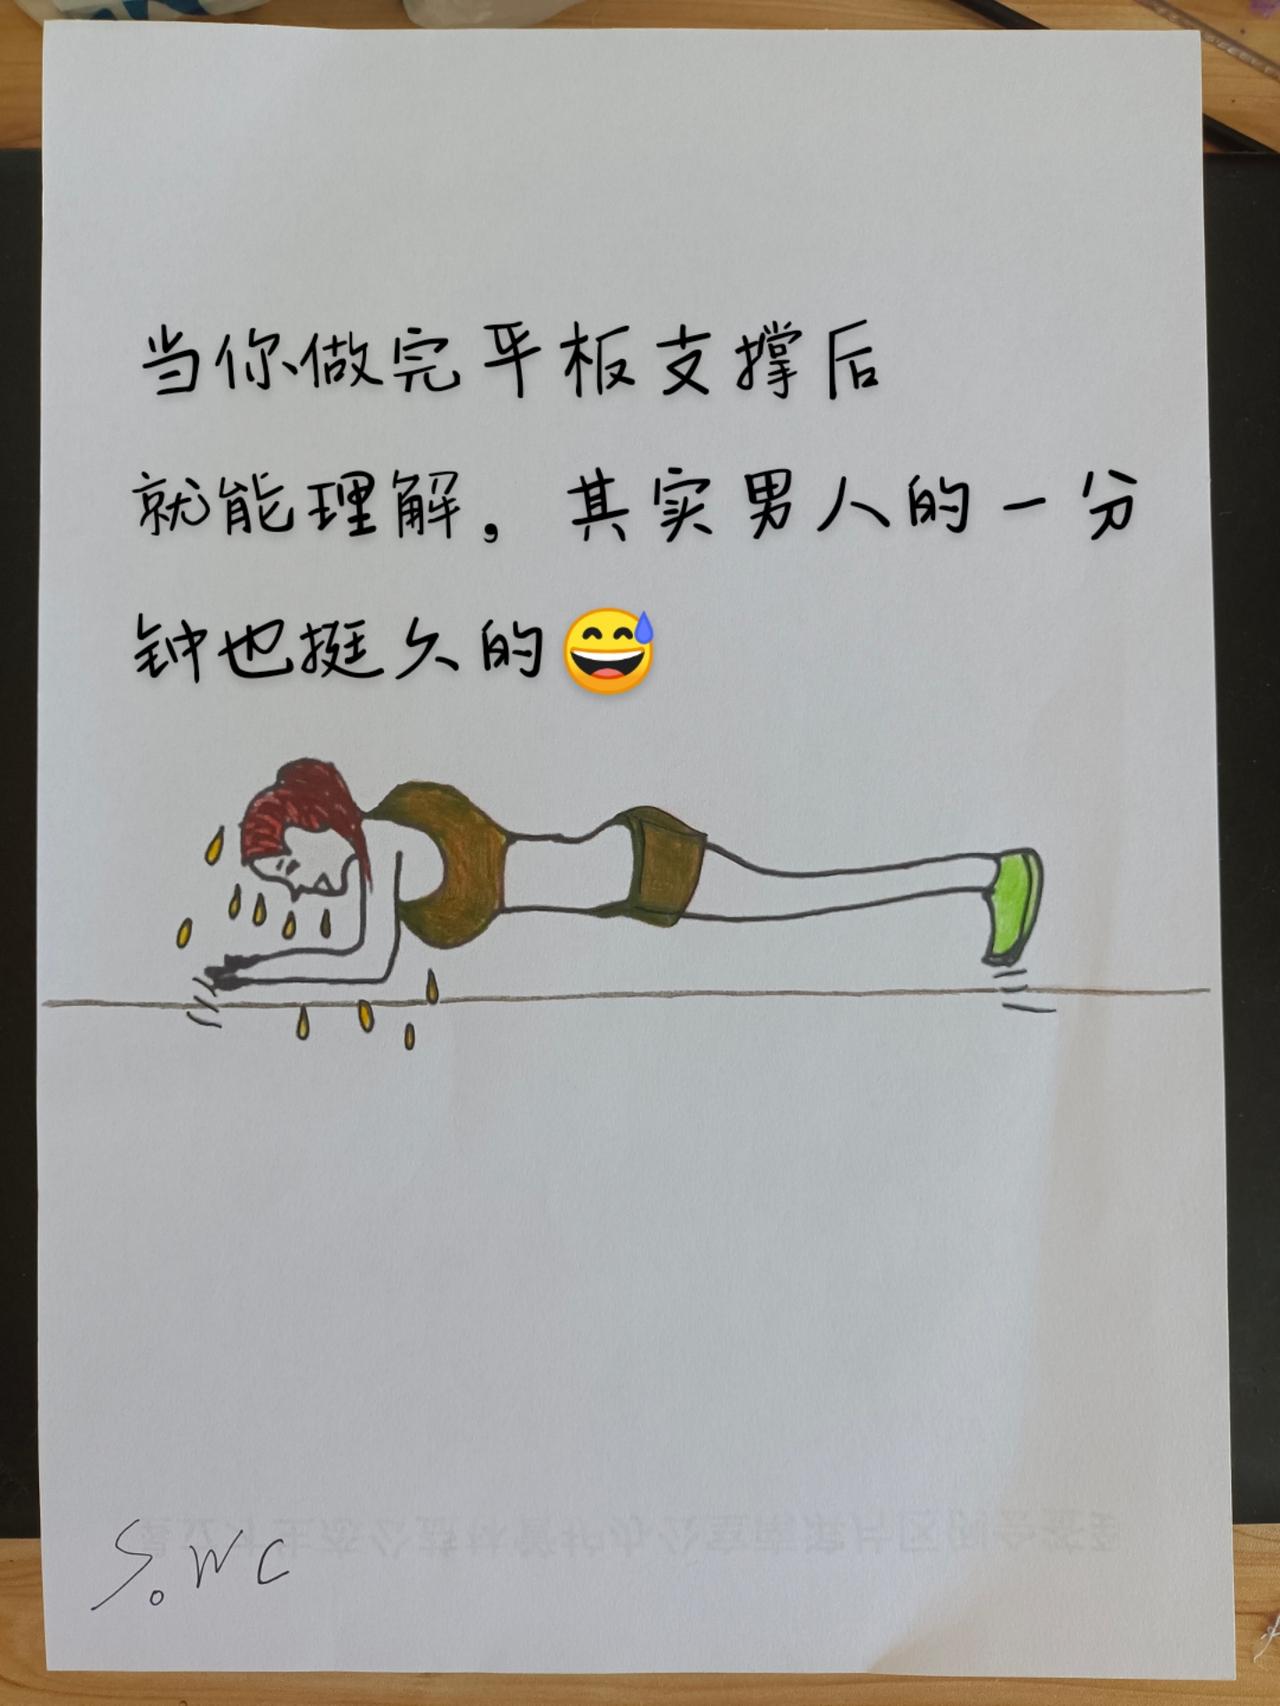 当你做完平板支撑后
就能理解，其实男人的一分
钟也挺久的😅
S.WC